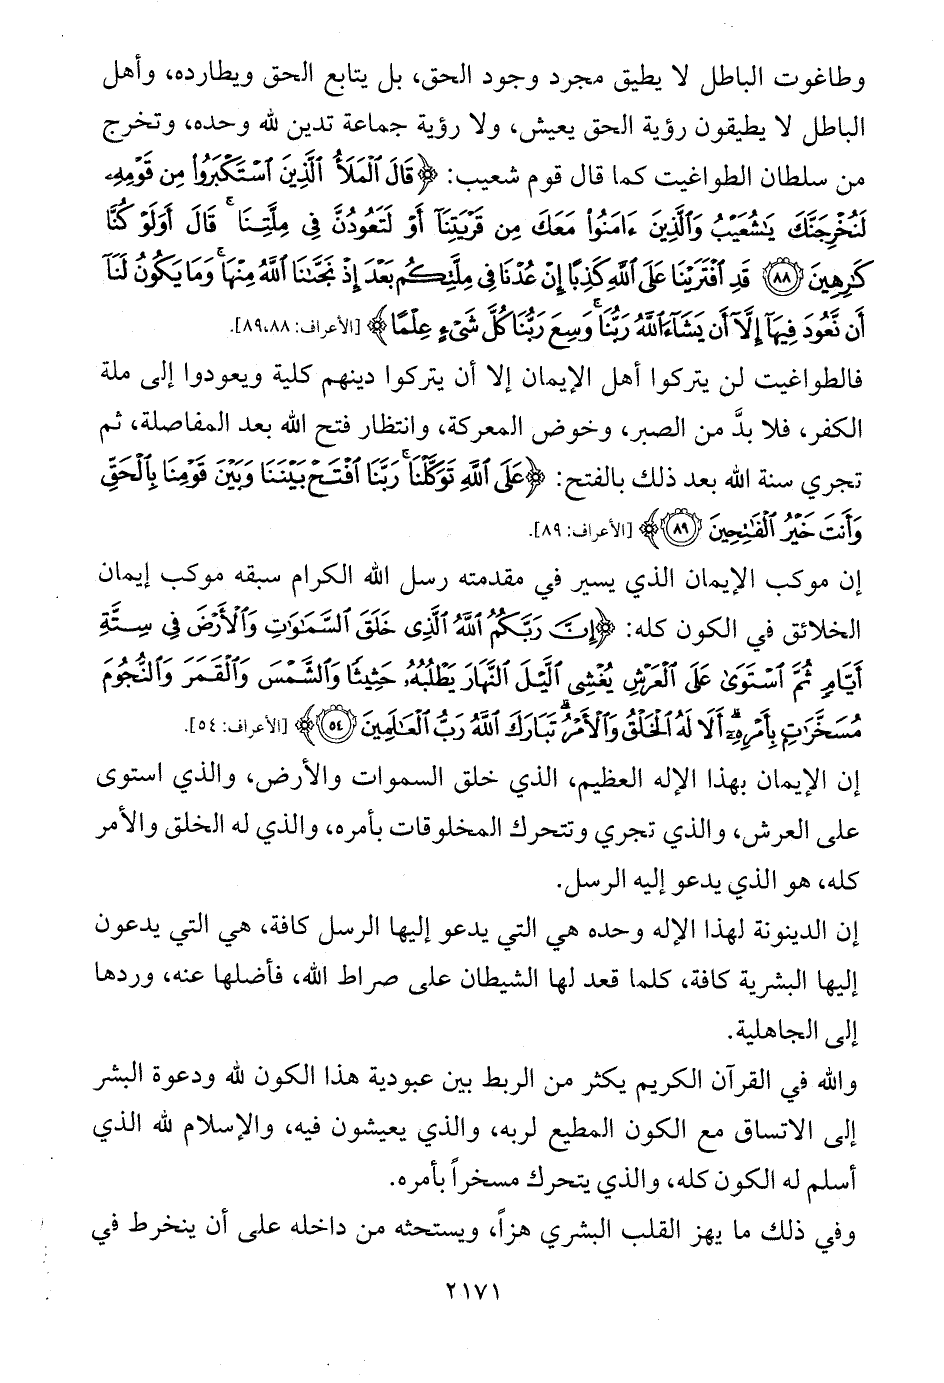 وطاغوت الباطل لا يطيق مجرد وجود الحق، بل يتابع الحق ويطارده، وأهل
الباطل لا يطيقون رؤية الحق يعيش، ولا رؤية جماعة تدين لله وحده، وتخرج
من سلطان الطواغيت كما قال قوم شعيب: ﴿قَالَ ٱلْمَلَأُ ٱلَّذِينَ ٱسْتَكْبَرُوا۟ مِن قَوْمِهِۦ
لَنُخْرِجَنَّكَ يَٰشُعَيْبُ وَٱلَّذِينَ ءَامَنُوا۟ مَعَكَ مِن قَرْيَتِنَآ أَوْ لَتَعُودُنَّ فِى مِلَّتِنَا ۚ قَالَ أَوَلَوْ كُنَّا
كَٰرِهِينَ ٨٨ قَدِ ٱفْتَرَيْنَا عَلَى ٱللَّهِ كَذِبًا إِنْ عُدْنَا فِى مِلَّتِكُم بَعْدَ إِذْ نَجَّىٰنَا ٱللَّهُ مِنْهَا ۚ وَمَا يَكُونُ لَنَآ
أَن نَّعُودَ فِيهَآ إِلَّآ أَن يَشَآءَ ٱللَّهُ رَبُّنَا ۚ وَسِعَ رَبُّنَا كُلَّ شَىْءٍ عِلْمًا﴾ [الأعراف: ٨٨، ٨٩].
فالطواغيت لن يتركوا أهل الإيمان إلا أن يتركوا دينهم كلية ويعودوا إلى ملة
الكفر، فلا بدَّ من الصبر، وخوض المعركة، وانتظار فتح الله بعد المفاصلة، ثم
تجري سنة الله بعد ذلك بالفتح: ﴿عَلَى ٱللَّهِ تَوَكَّلْنَا ۚ رَبَّنَا ٱفْتَحْ بَيْنَنَا وَبَيْنَ قَوْمِنَا بِٱلْحَقِّ
وَأَنتَ خَيْرُ ٱلْفَٰتِحِينَ ٨٩﴾ [الأعراف: ٨٩].
إن موكب الإيمان الذي يسير في مقدمته رسل الله الكرام سبقه موكب إيمان
الخلائق في الكون كله: ﴿إِنَّ رَبَّكُمُ ٱللَّهُ ٱلَّذِى خَلَقَ ٱلسَّمَٰوَٰتِ وَٱلْأَرْضَ فِى سِتَّةِ
أَيَّامٍ ثُمَّ ٱسْتَوَىٰ عَلَى ٱلْعَرْشِ يُغْشِى ٱلَّيْلَ ٱلنَّهَارَ يَطْلُبُهُۥ حَثِيثًا وَٱلشَّمْسَ وَٱلْقَمَرَ وَٱلنُّجُومَ
مُسَخَّرَٰتٍۭ بِأَمْرِهِۦٓ ۗ أَلَا لَهُ ٱلْخَلْقُ وَٱلْأَمْرُ ۗ تَبَارَكَ ٱللَّهُ رَبُّ ٱلْعَٰلَمِينَ ٥٤﴾ [الأعراف: ٥٤].
إن الإيمان بهذا الإله العظيم، الذي خلق السموات والأرض، والذي استوى
على العرش، والذي تجري وتتحرك المخلوقات بأمره، والذي له الخلق والأمر
كله، هو الذي يدعو إليه الرسل.
إن الدينونة لهذا الإله وحده هي التي يدعو إليها الرسل كافة، هي التي يدعون
إليها البشرية كافة، كلما قعد لها الشيطان على صراط الله، فأضلها عنه، وردها
إلى الجاهلية.
والله في القرآن الكريم يكثر من الربط بين عبودية هذا الكون لله ودعوة البشر
إلى الاتساق مع الكون المطيع لربه، والذي يعيشون فيه، والإسلام لله الذي
أسلم له الكون كله، والذي يتحرك مسخراً بأمره.
وفي ذلك ما يهز القلب البشري هزاً، ويستحثه من داخله على أن ينخرط في
٢١٧١